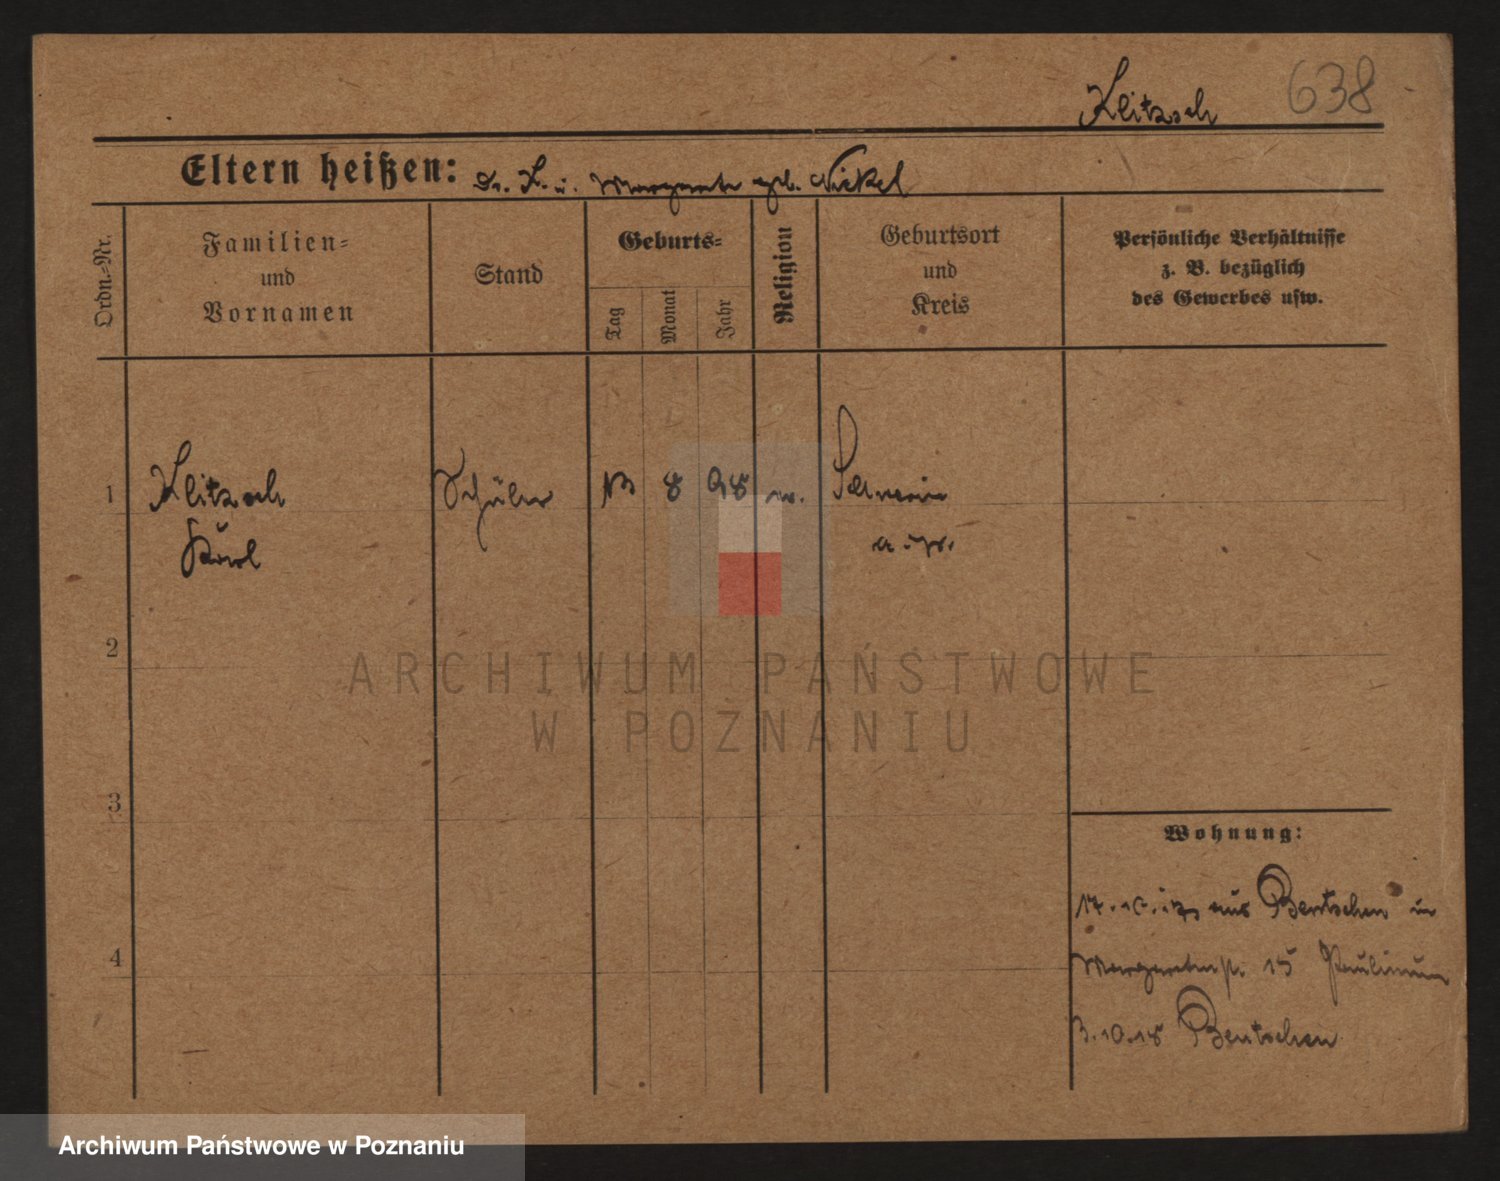 Klitzsch 638
Eltern heißen: Dr. K. u. Margarete geb. Nickel
Ordn.-Nr.
Familien-
und
Vornamen
Stand
Geburts-
Tag
Monat
Jahr
Religion
Geburtsort
und
Kreis
Persönliche Verhältnisse
z. B. bezüglich
des Gewerbes usw.
1 Klitzsch Schüler 13 8 98 Schwerin
Karl a. W.
2
3
4
Wohnung:
aus Bentschen in
Margaretenstr. 15 Paulinum
3.10.18 Bentschen
ARCHIWUM PAŃSTWOWE
W POZNANIU
Archiwum Państwowe w Poznaniu